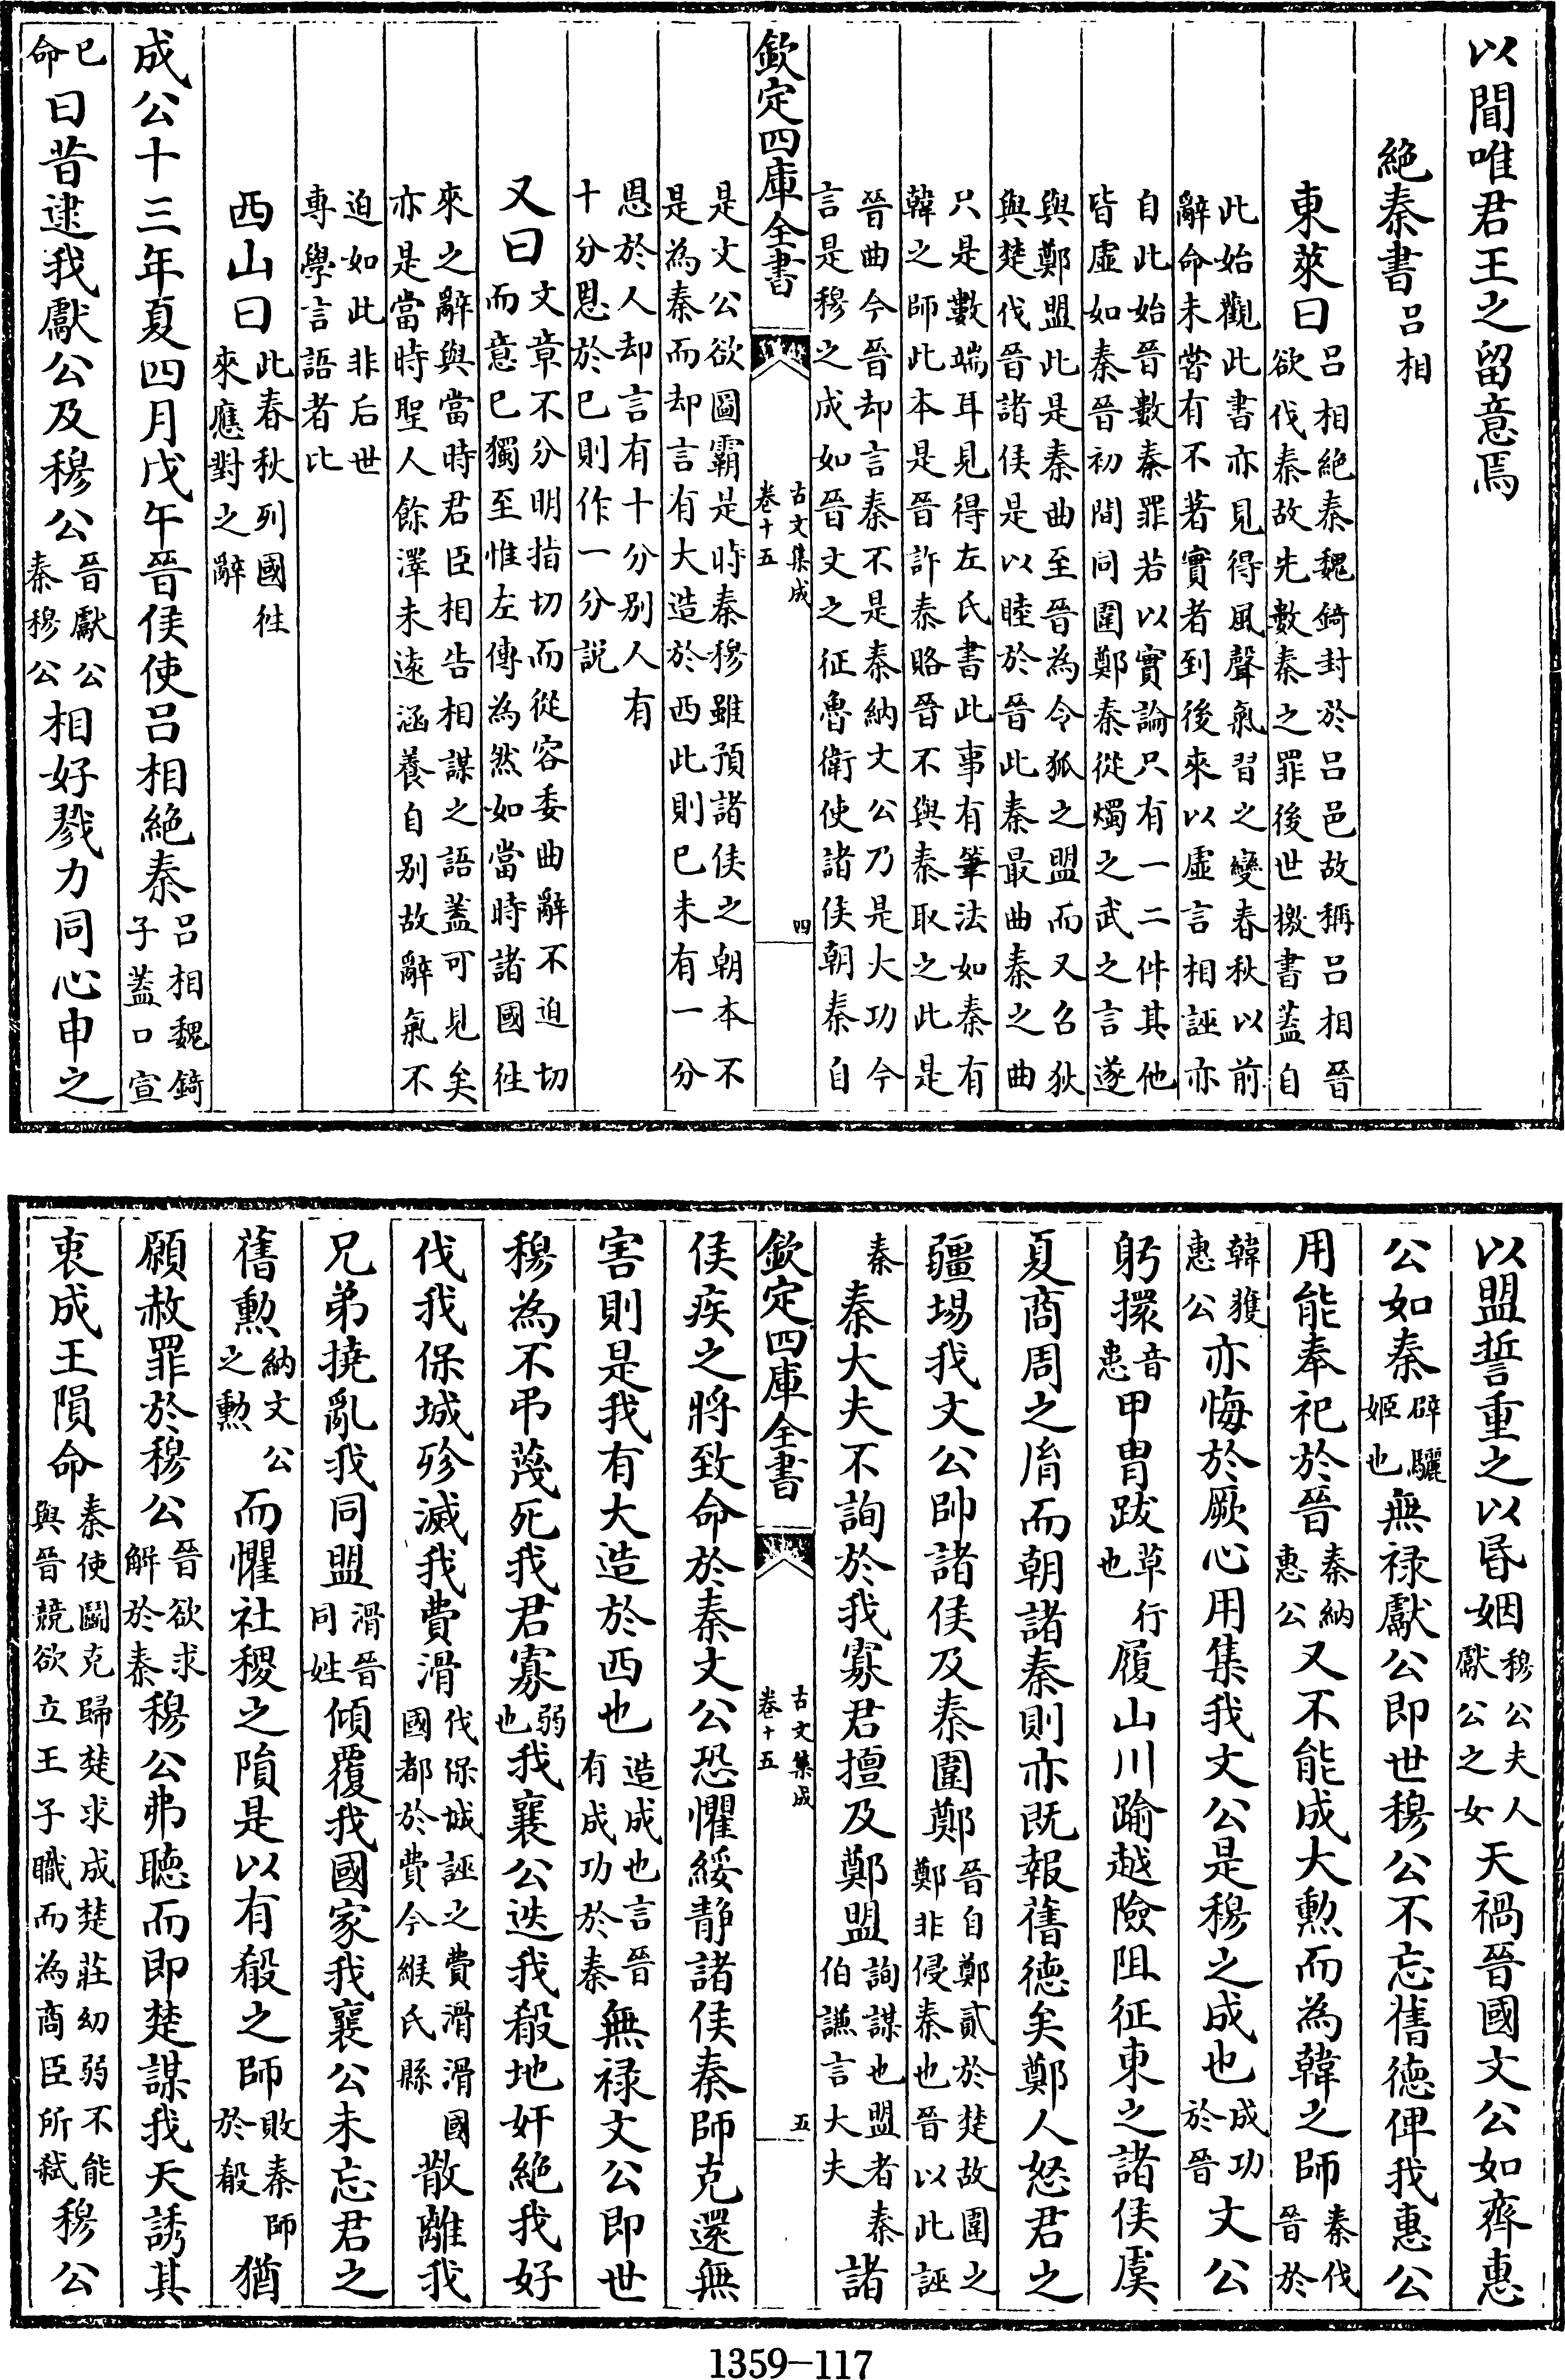 以間唯君王之留意焉
絶秦書吕相
東萊曰吕相絶秦魏錡封於吕邑故稱吕相晉欲伐秦故先數秦之罪後世檄書蓋自
此始觀此書亦見得風聲氣習之變春秋以前辭命未嘗有不著實者到後來以虛言相誣亦
自此始晉數秦罪若以實論只有一二件其他皆虛如秦晉初間同圍鄭秦從燭之武之言遂
與鄭盟此是秦曲至晉為令狐之盟而又召狄與楚伐晉諸侯是以睦於晉此秦最曲秦之曲
只是數端耳見得左氏書此事有筆法如秦有韓之師此本是晉許秦賂晉不與秦取之此是
晉曲今晉却言秦不是秦納文公乃是大功今言是穆之成如晉文之征魯衛使諸侯朝秦自
欽定四庫全書 古文集成 卷十五 四
是文公欲圖霸是時秦穆雖預諸侯之朝本不是為秦而却言有大造於西此則已未有一分
恩於人却言有十分别人有十分恩於已則作一分説
又曰文章不分明指切而從容委曲辭不迫切而意已獨至惟左傳為然如當時諸國徃
來之辭與當時君臣相告相謀之語蓋可見矣亦是當時聖人餘澤未逺涵養自别故辭氣不
迫如此非后世專學言語者比
西山曰此春秋列國徃來應對之辭
成公十三年夏四月戊午晉侯使吕相絶秦吕相魏錡子蓋口宣
已命曰昔逮我獻公及穆公晉獻公秦穆公相好戮力同心申之
以盟誓重之以昏姻穆公夫人獻公之女天禍晉國文公如齊惠
公如秦辟驪姬也無禄獻公即世穆公不忘舊德俾我惠公
用能奉祀於晉秦納惠公又不能成大勲而為韓之師秦伐晉於
韓獲惠公亦悔於厥心用集我文公是穆之成也成功於晉文公
躬擐音患甲胄跋草行也履山川踰越險阻征東之諸侯虞
夏商周之胤而朝諸秦則亦既報舊德矣鄭人怒君之
疆埸我文公帥諸侯及秦圍鄭晉自鄭貳於楚故圍之鄭非侵秦也晉以此誣
秦秦大夫不詢於我寡君擅及鄭盟詢謀也盟者秦伯謙言大夫諸
欽定四庫全書 古文集成 卷十五 五
侯疾之將致命於秦文公恐懼綏静諸侯秦師克還無
害則是我有大造於西也造成也言晉有成功於秦無禄文公即世
穆為不弔蔑死我君寡弱也我襄公迭我殽地奸絶我好
伐我保城殄滅我費滑伐保城誣之費滑滑國國都於費今緱氏縣散離我
兄弟撓亂我同盟滑晉同姓傾覆我國家我襄公未忘君之
舊勲納文公之勲而懼社稷之隕是以有殽之師敗秦師於殽猶
願赦罪於穆公晉欲求解於秦穆公弗聽而即楚謀我天誘其
衷成王隕命秦使鬭克歸楚求成楚莊幼弱不能與晉競欲立王子職而為商臣所弑穆公
1359-117